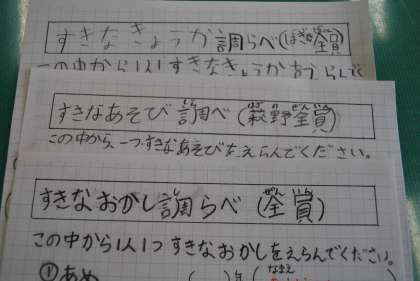 すきなきょうか調らべ(はぎの全員)
この中から1人1すきなきょうかをえらんで
すきなあそび調べ(萩野全員)
この中から、一つすきなあそびをえらんでください。
すきなおかし調らべ(全員)
この中から1人1つすきなおかしをえらんでください。
①あめ ( )年(なまえ